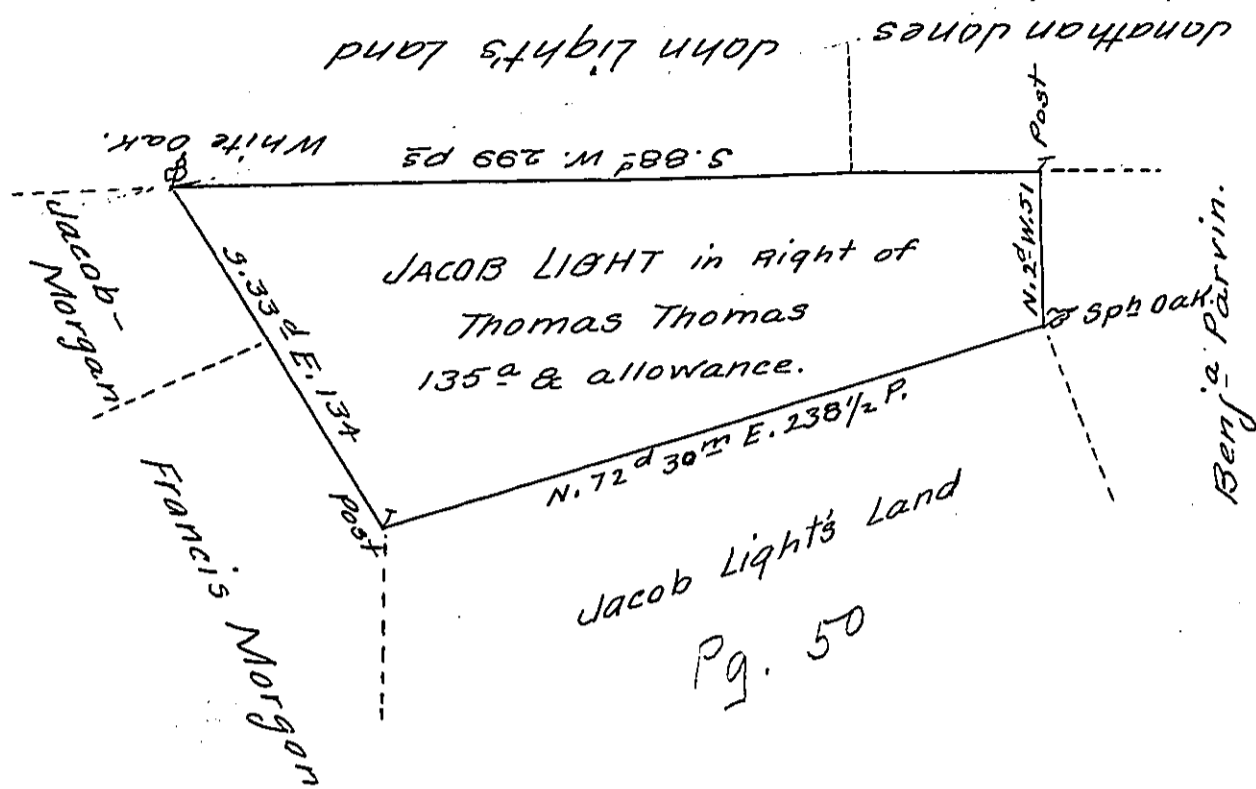 Jonathan Jones
John Light's Land
Post
White Oak.
S.88d W. 299 ps
Jacob-
Morgan
S.33d E. 134
JACOB LIGHT in Right of
Thomas Thomas
135a & allowance.
N.2d W.51
Spn Oak.
Benja Parvin.
N. 72d 30m E. 238 1/2 P.
Post
Francis Morgan
Jacob Light's Land
Pg. 50